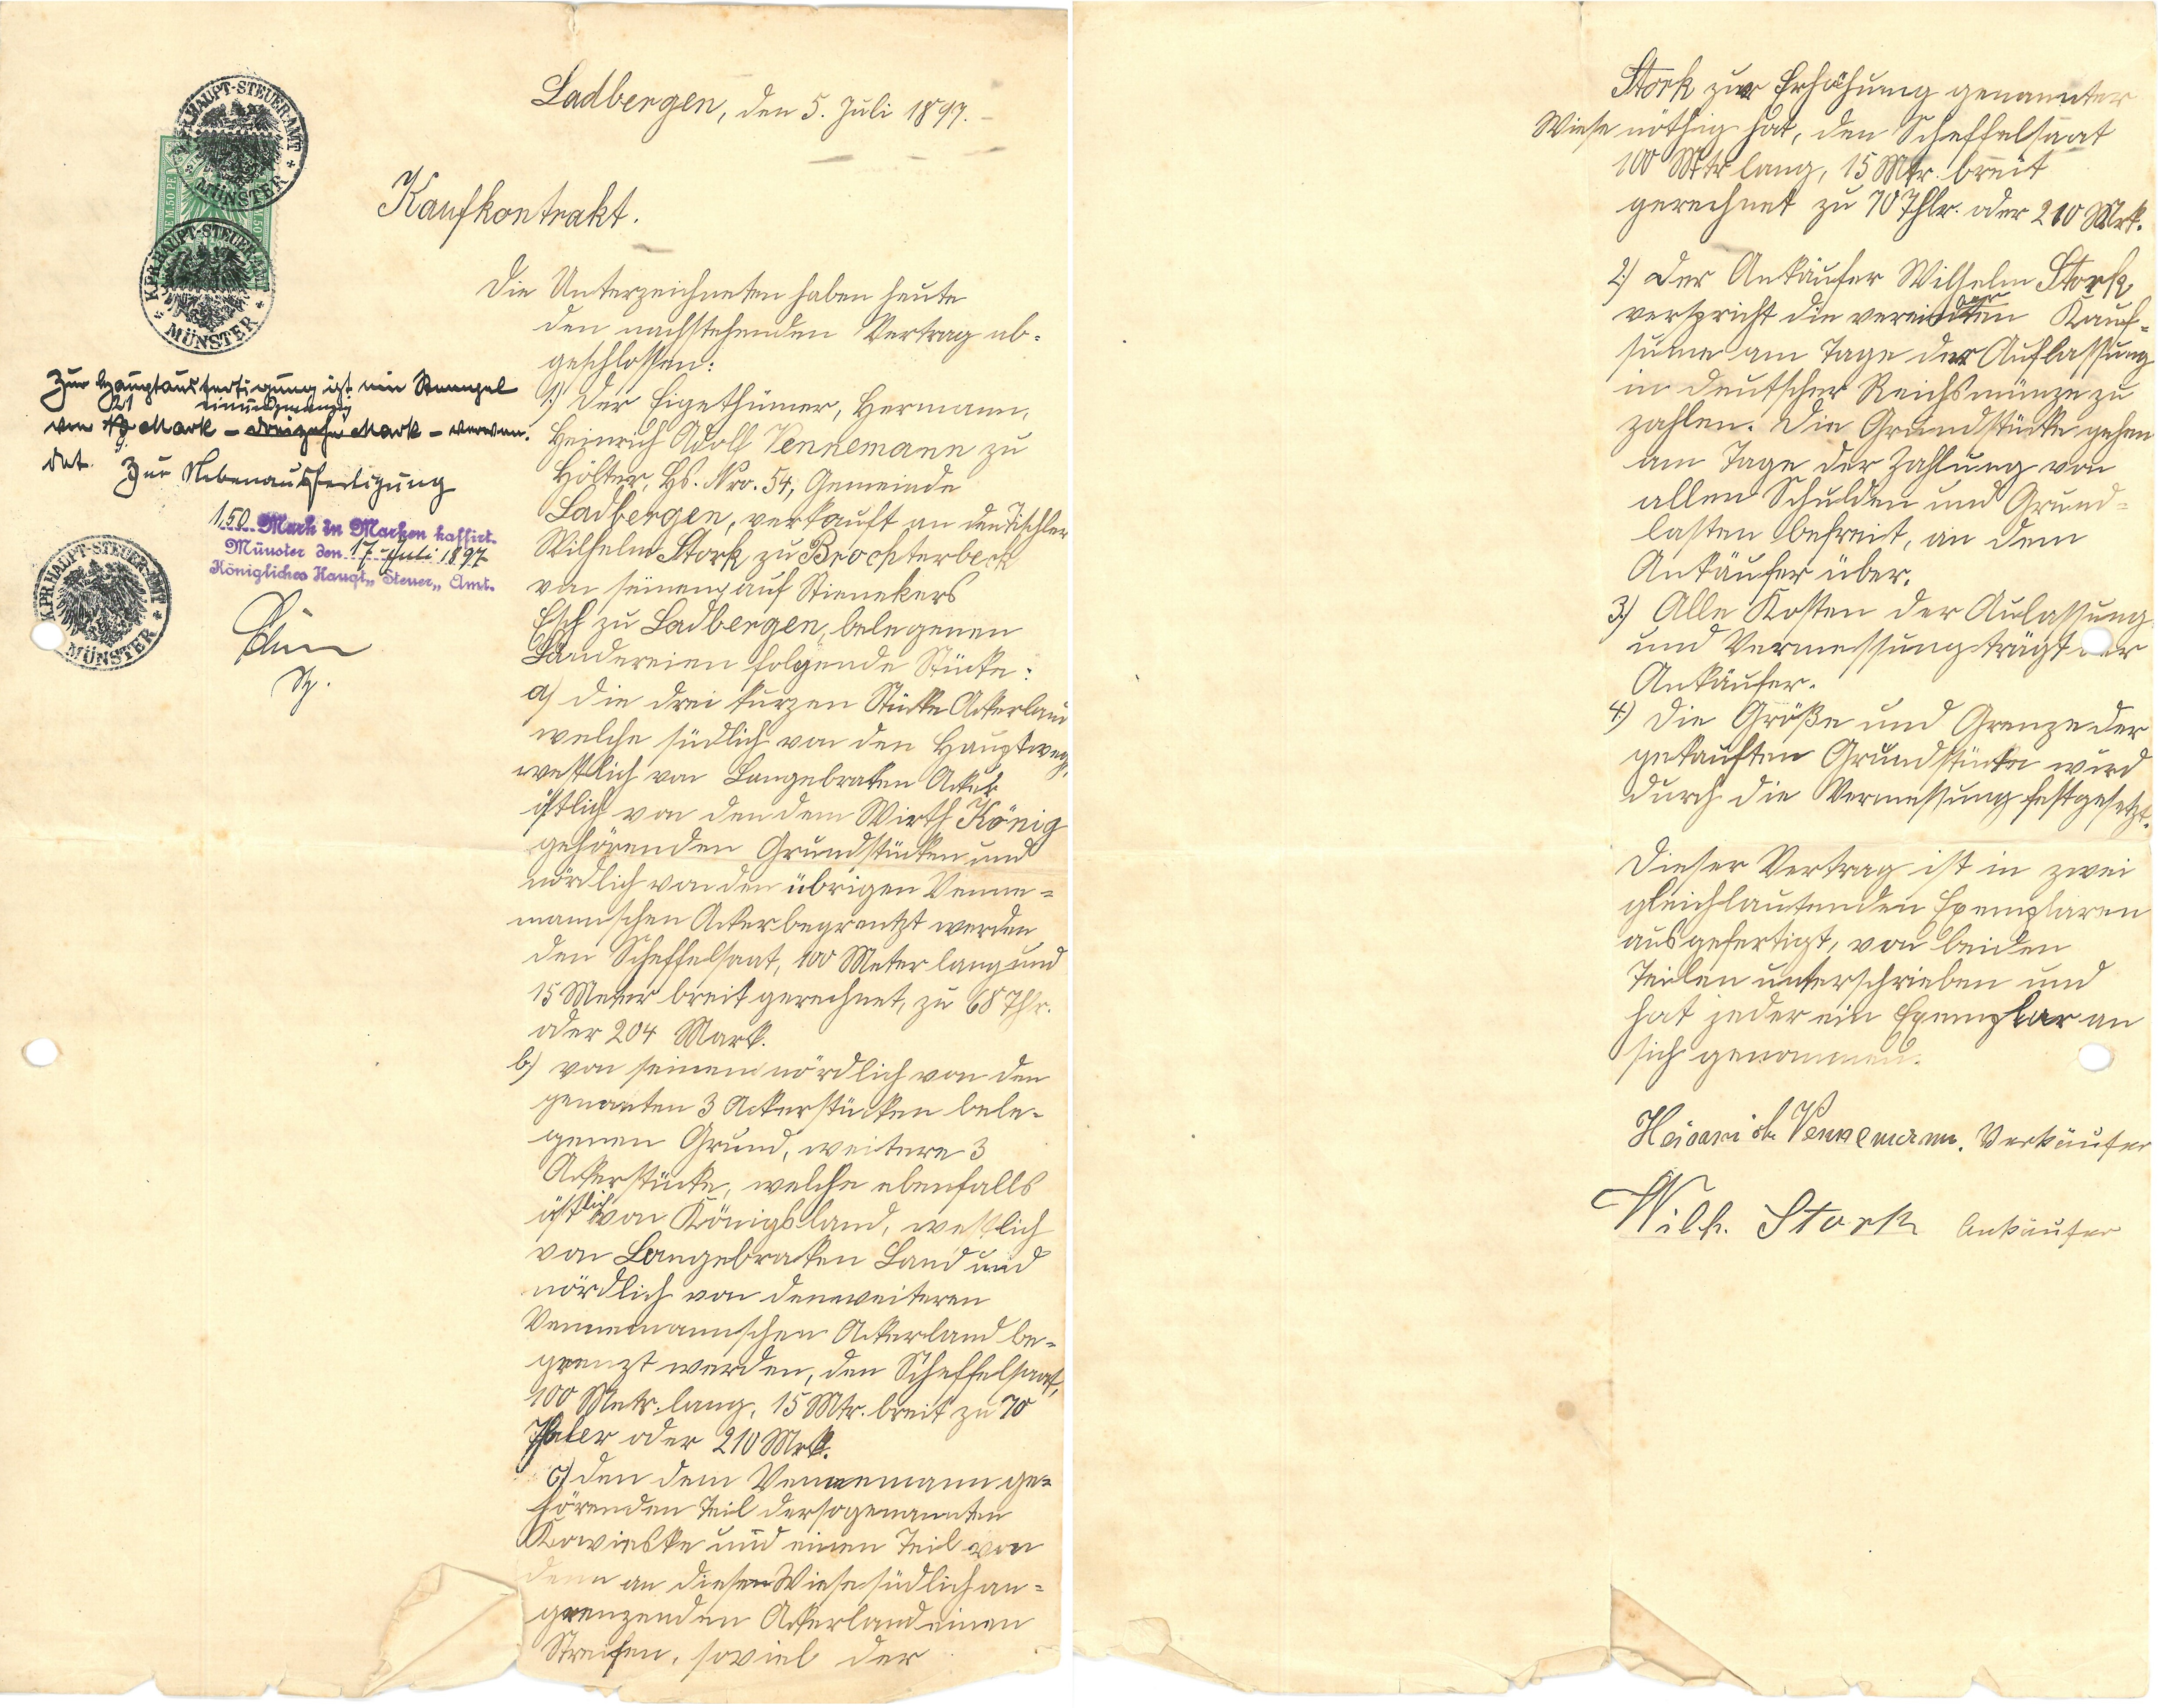 Ladbergen, den 5. Juli 1897.
Kaufkontrakt.
Die Unterzeichneten haben heute
den nachstehenden Vertrag ab-
geschlossen:
1.) Der Eigethümer, Hermann,
Heinrich Adolf Vennemann zu
Hölter, Hs. Nro. 54, Gemeinde
Ladbergen, verkauft an den Tischler
Wilhelm Stork zu Brochterbeck
von seinen auf Stienekers
Esch zu Ladbergen, belegenen
Ländereien folgende Stücke:
a) die drei kurzen Stücke Ackerland
welche südlich von den Hauptweg,
westlich von Langebraken Acker
östlich von den dem Wirth König
gehörenden Grundstücken und
nördlich von den übrigen Venne-
mannschen Acker begrentzt werden
den Scheffelsaat, 100 Meter lang und
15 Meter breit gerechnet, zu 68 Thlr.
oder 204 Mark.
b) von seinem nördlich von den
genanten 3 Ackerstücken bele-
genen Grund, weitere 3
Ackerstücke, welche ebenfalls
östlich von Königsland, westlich
von Langebracken Land und
nördlich von den weiteren
Vennemannschen Ackerland be-
grenzt werden, den Scheffelsaat,
100 Metr. lang, 15 Mtr. breit zu 70
Thaler oder 210 Mrk.
c) den dem Vennemann ge-
hörenden Teil der sogenannten
und einen Teil von
denn an diesen Wiese südlich an-
grenzenden Ackerland einen
Streifen, soviel der
KPR. HAUPT-STEUER-AMT
MÜNSTER
M.50 PF.
KPR. HAUPT-STEUER-AMT
MÜNSTER
Zur Hauptausfertigung ist ein Stempel
21 einundzwanzig
von Mark – dreizehn Mark – verwen-
det. Zur Nebenausfertigung
1,50 Mark in Marken kassirt.
Münster den 17 Juli 1897
Königliches Haupt„ Steuer„ Amt.
KPR. HAUPT-STEUER-AMT
MÜNSTER
Stork zur Erhöhung genannter
Wiese nöthig hat, den Scheffelsaat
100 Mtr lang, 15 Mtr. breit
gerechnet zu 70 Thlr. oder 210 Mrk.
2.) Der Ankäufer Wilhelm Stork
verspricht die Kauf-
sume am Tage der Auflassung
in deutscher Reichsmünze zu
zahlen. Die Grundstücke gehen
am Tage der Zahlung von
allen Schulden und Grund-
lasten befreit, an dem
Ankäufer über.
3.) Alle Kosten der Aulassung
und Vermessung trägt der
Ankäufer.
4.) Die Größe und Grenze der
gekauften Grundstücke wird
durch die Vermessung festgesetzt.
Dieser Vertrag ist in zwei
gleichlautenden Exemplaren
ausgefertigt, von beiden
Teilen unterschrieben und
hat jeder ein Exemplar an
sich genommen.
Vennemann. Verkäufer
Wilh. Stork Ankäufer